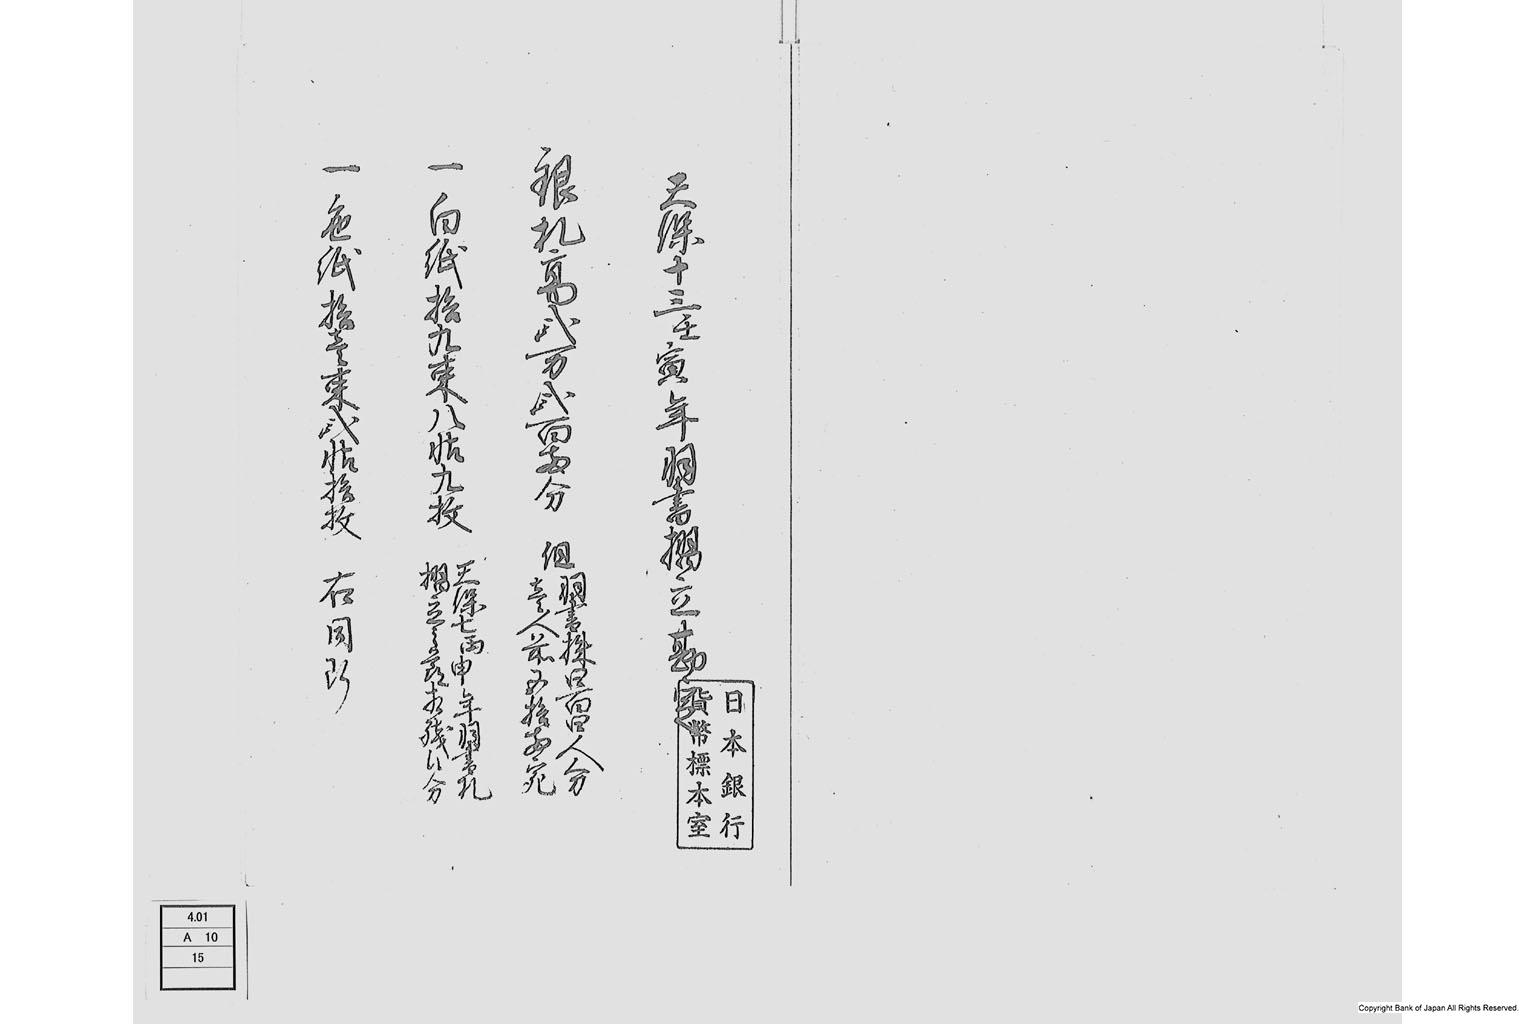 天保十三壬寅年羽書摺立勘定
銀札高弐万弐百両分
但
羽書株四百四人分
壱人前五拾両宛
一 白紙拾九束八帖九枚
天保七丙申年羽書札
摺立之節有残り分
一 色紙拾壱束弐帖拾枚
右同断
日本銀行
貨幣標本室
4.01
A 10
15
Copyright Bank of Japan All Rights Reserved.